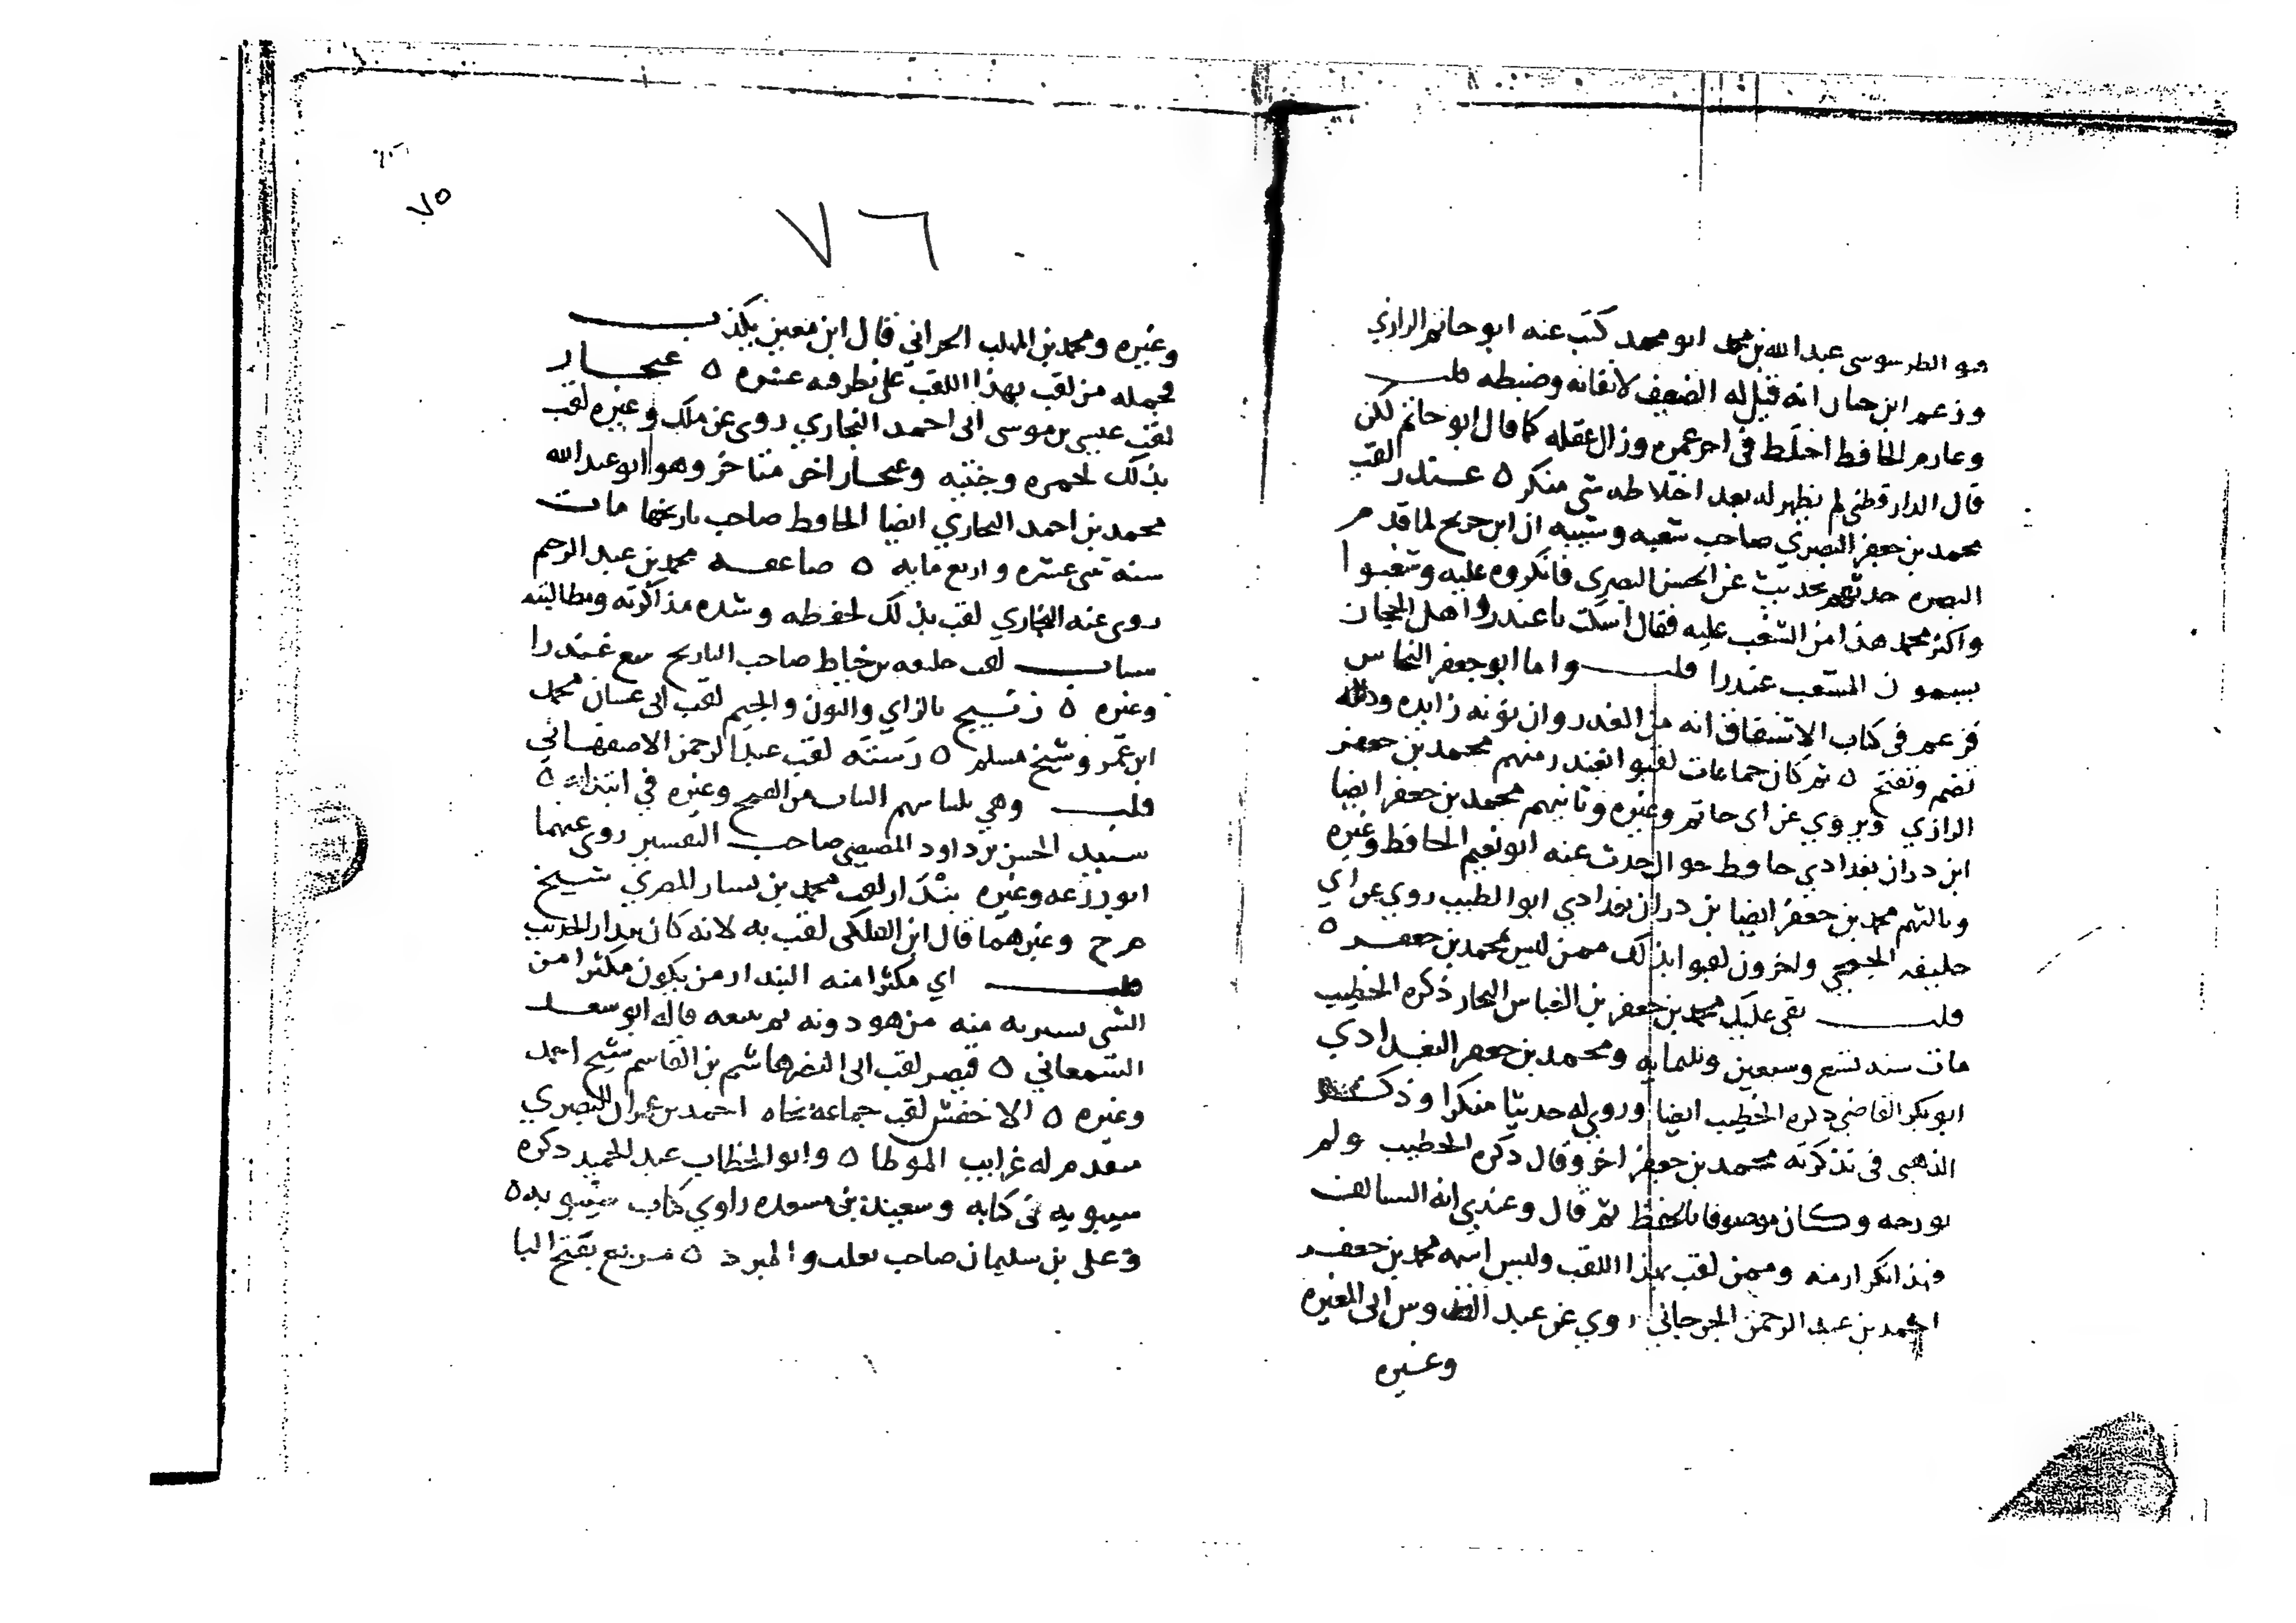 هو الطرسوسي عبد الله بن محمد ابو محمد كتب عنه ابو حاتم الرازي
وزعم ابن حبان انه قيل له الضعيف لاتقانه وضبطه قلت
وعارم الحافظ اختلط في اخر عمره وزال عقله كما قال ابو حاتم لكن
قال الدارقطني لم يظهر له بعد اختلاطه شي منكر ٥ غندر لقب
محمد بن جعفر البصري صاحب شعبه وسببه ان ابن جريج لما قدم
البصره حدثهم بحديث عن الحسن البصري فانكروه عليه وشغبوا
واكثر محمد هذا من الشغب عليه فقال اسكت يا غندر واهل الحجاز
يسمون المشغب غندرا قلت واما ابو جعفر النحاس
فزعم في كتاب الاشتقاق انه من الغدر وان نونه زايده وداله
تضم وتفتح ٥ ثم كان جماعات لقبوا بغندر منهم محمد بن جعفر
الرازي ويروي عن ابي حاتم وغيره وثانيهم محمد بن جعفر ايضا
ابن دران بغدادي حافظ جوال حدث عنه ابو نعيم الحافظ وغيره
وثالثهم محمد بن جعفر ايضا بن دران بغدادي ابو الطيب روي عن ابي
خليفه الجمحي واخرون لقبوا بذلك ممن ليس محمد بن جعفر ٥
قلت بقي عليك محمد بن جعفر بن العباس النجار ذكره الخطيب
مات سنه تسع وسبعين وثلثمايه ومحمد بن جعفر البغدادي
ابو بكر القاضي ذكره الخطيب ايضا وروي له حديثا منكرا وذكر
الذهبي في تذكرته محمد بن جعفر اخر وقال ذكره الخطيب ولم
يورخه وكان موصوفا بالحفظ ثم قال وعندي انه السالف
وهذا تكرار منه وممن لقب بهذا اللقب وليس اسمه محمد بن جعفر
احمد بن عبد الرحمن الجرجاني روي عن عبد القدوس ابي المغيره
وغيره
٧٥
٧٦
وغيره ومحمد بن المهلب الحراني قال ابن معين يكذب
فجمله من لقب بهذا اللقب علي نظر فيه عشره ٥ غنجار
لقب عيسى بن موسى ابي احمد البخاري روى عن ملك وغيره لقب
بذلك لحمره وجنتيه وغنجار اخر متاخر وهو ابو عبد الله
محمد بن احمد البخاري ايضا الحافظ صاحب تاريخها مات
سنه ثنتي عشره واربع مايه ٥ صاعقه محمد بن عبد الرحيم
روى عنه البخاري لقب بذلك لحفظه وشده مذاكرته ومطالبته
شباب لقب خليفه بن خياط صاحب التاريخ سمع غندرا
وغيره ٥ زنيج بالزاي والنون والجيم لقب ابي غسان محمد
ابن عمرو شيخ مسلم ٥ رسته لقب عبد الرحمن الاصفهاني
قلت وهي بلسانهم النبات من القمح وغيره في ابتدائه ٥
سنيد الحسين بن داود المصيصي صاحب التفسير روى عنهما
ابو زرعه وغيره بندار لقب محمد بن بشار البصري شيخ
خ م وغيرهما قال ابن الفلكي لقب به لانه كان بندار الحديث
قلت اي مكثرا منه البندار من يكون مكثرا من
الشي يشتريه منه من هو دونه ثم يبيعه قاله ابو سعد
السمعاني ٥ قيصر لقب ابي النضر هاشم بن القاسم شيخ احمد
وغيره ٥ الاخفش لقب جماعه نحاه احمد بن عمران البصري
متقدم له غرايب الموطا ٥ وابو الخطاب عبد الحميد ذكره
سيبويه في كتابه وسعيد بن مسعده راوي كتاب سيبويه ٥
وعلي بن سليمان صاحب ثعلب والمبرد ٥ مربع بفتح البا